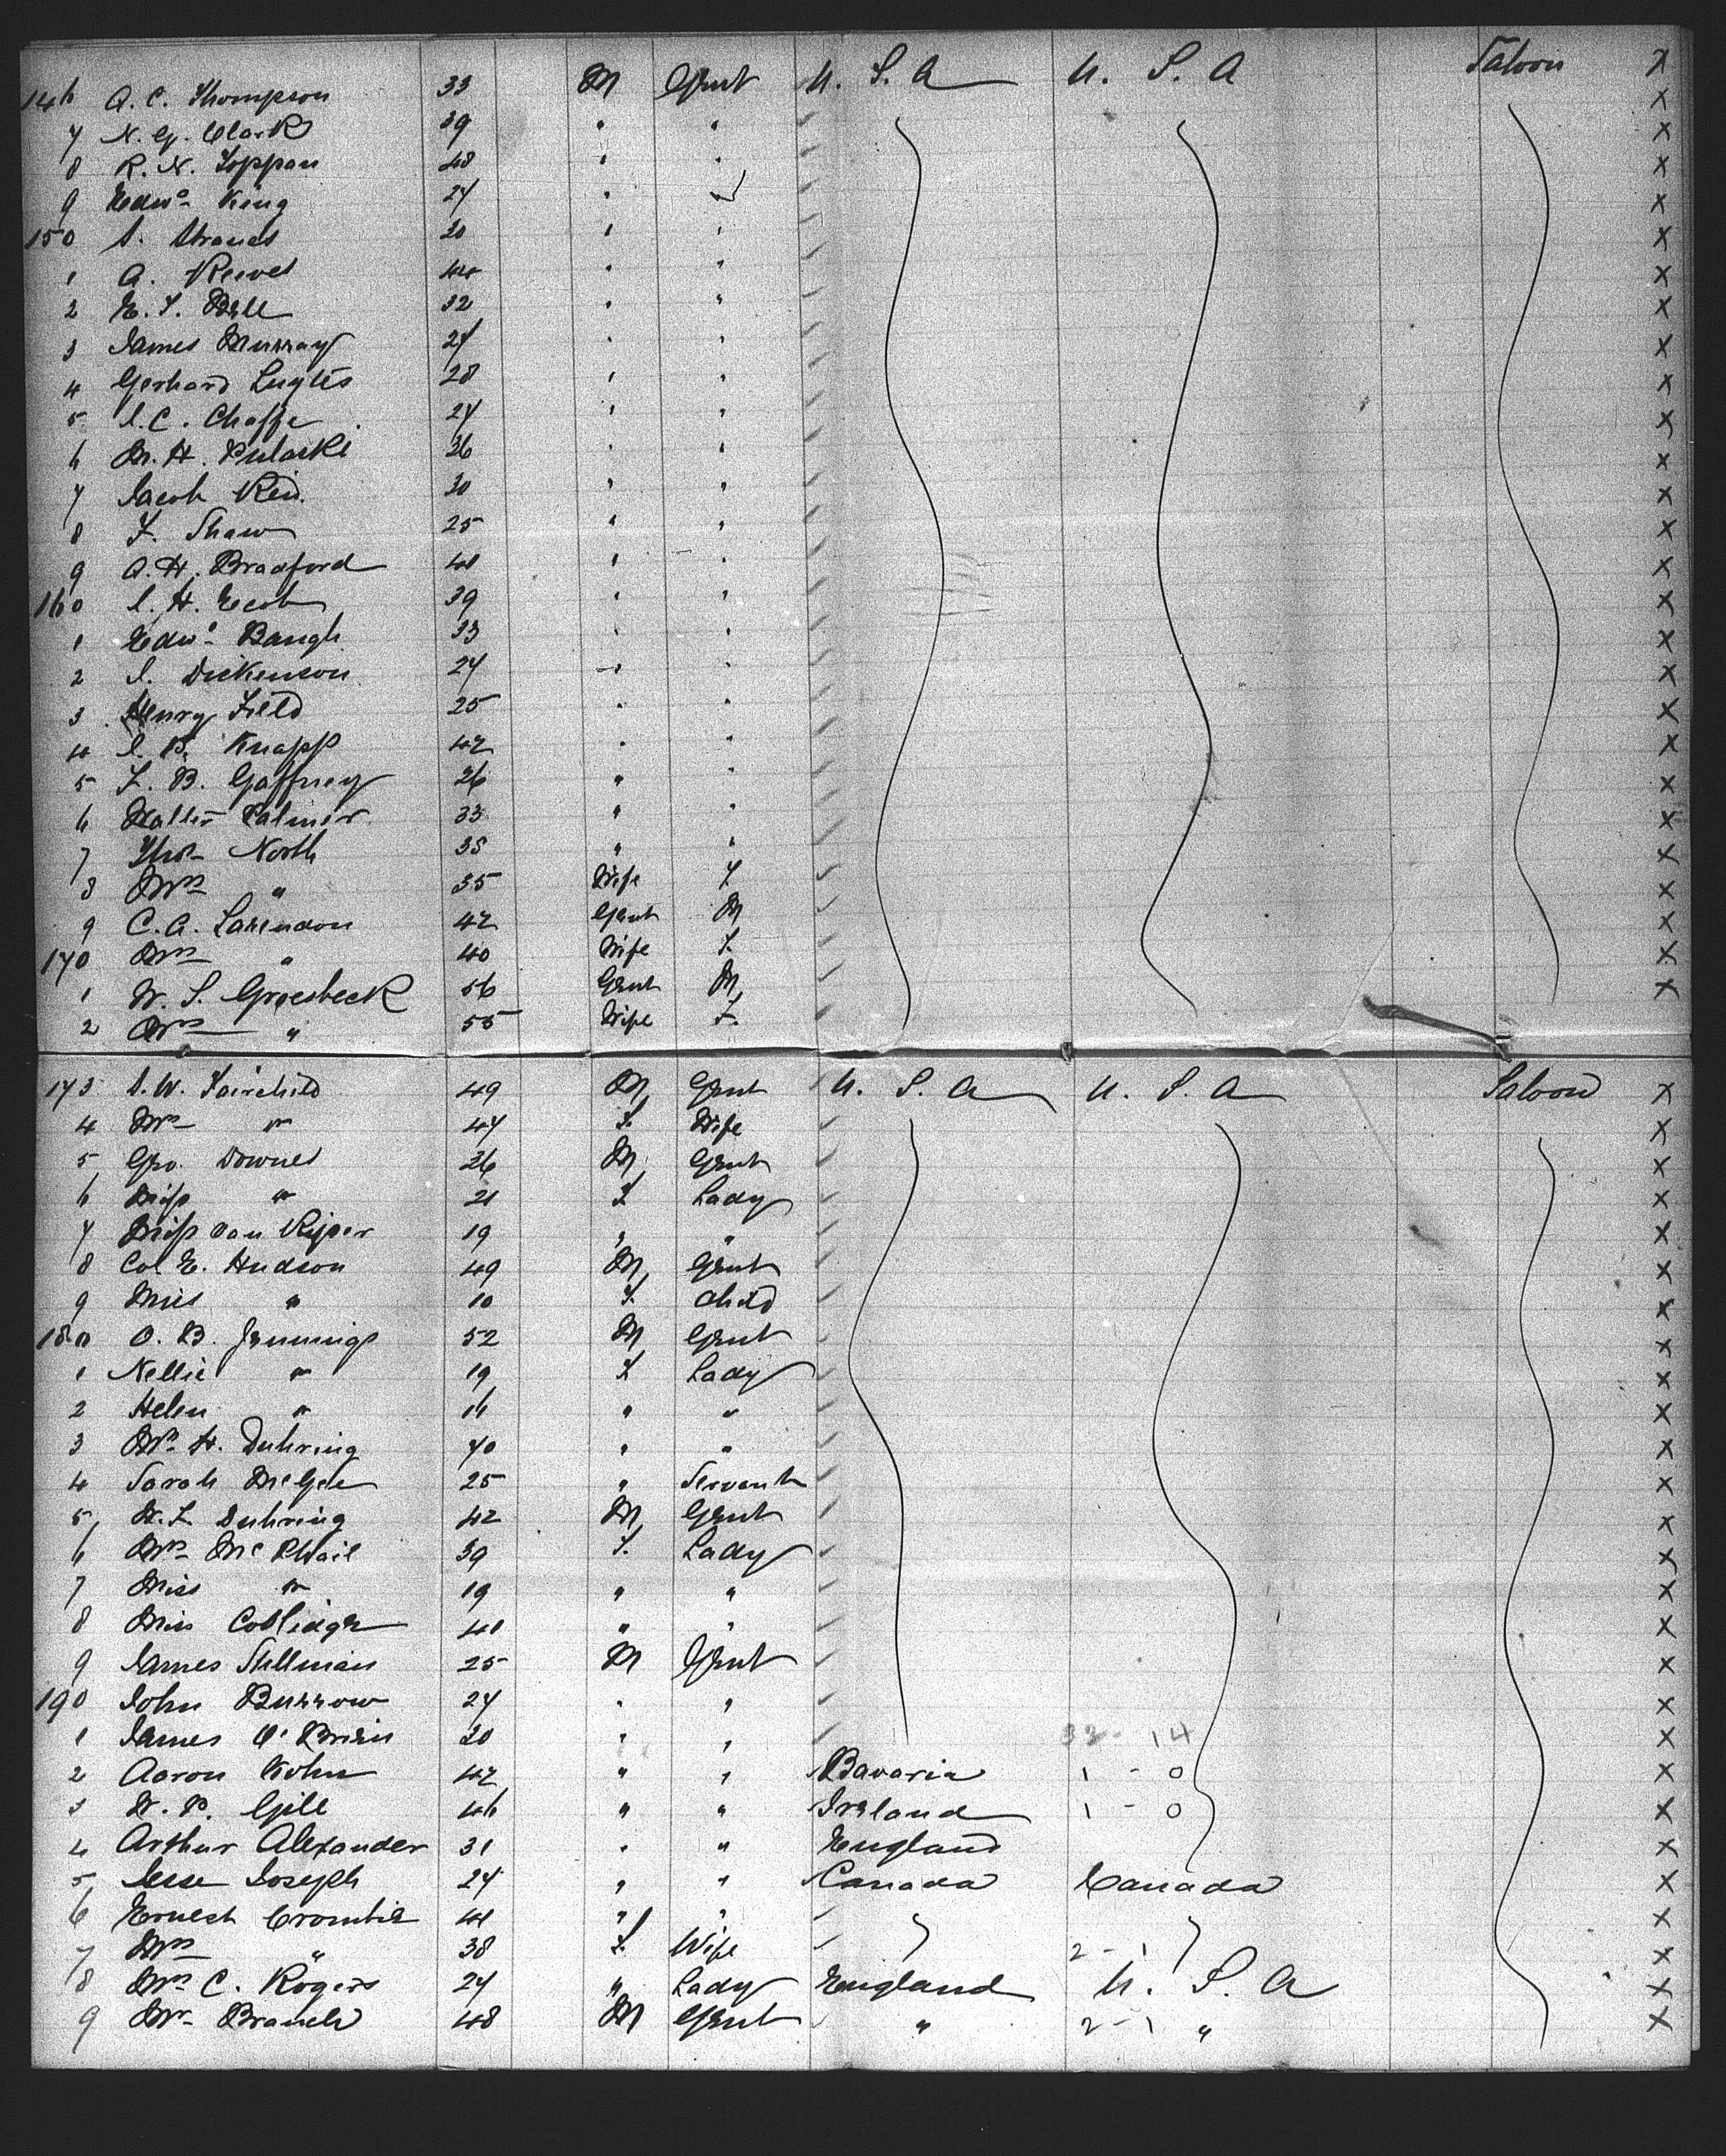 146 A. C. Thompson 33 M Gent U. S. A U. S. A Saloon X
7 N. G. Clark 39 " " X
8 R. N. Toppan 48 " " X
9 Edwd King 24 " " X
150 S. Straus 30 " " X
1 A. Reeves 44 " " X
2 E. T. Bell 32 " " X
3 James Murray 24 " " X
4 Gerhard 28 " " X
5 J. C. Chaffe 24 " " X
6 M. H. Pulaski 36 " " X
7 Jacob Reid 30 " " X
8 F. Shaw 25 " " X
9 A. H. Bradford 41 " " X
160 J. H. Ecob 39 " " X
1 Edwd Baugh 33 " " X
2 J. Dickenson 24 " " X
3 Henry Field 25 " " X
4 J. B. Knapp 42 " " X
5 F. B. Gaffney 26 " " X
6 Walter Palmer 33 " " X
7 Thos North 35 " " X
8 Mrs " 35 Wife F X
9 C. A. Larendon 42 Gent M X
170 Mrs " 40 Wife F. X
1 W. S. Groesbeck 56 Gent M X
2 Mrs " 55 Wife F.
173 S. W. Fairchild 49 M Gent U. S. A U. S. A Saloon X
4 Mrs " 44 F. Wife X
5 Geo. Downes 26 M Gent X
6 Miss " 21 F Lady X
7 Miss Van Riper 19 " " X
8 Col E. Hudson 49 M Gent X
9 Miss " 10 F. Child X
180 O. B. Jennings 52 M Gent X
1 Nellie " 19 F Lady X
2 Helen " 16 " " X
3 Mrs H. Duhring 70 " " X
4 Sarah McGee 25 " Servant X
5 W. L. Duhring 42 M Gent X
6 Mrs McPhail 39 F. Lady X
7 Miss " 19 " " X
8 Miss Coolidge 40 " " X
9 James Stillman 25 M Gent X
190 John Burrow 24 " " X
1 James O'Brien 20 " " 32 - 14 X
2 Aaron Kohn 42 " " Bavaria 1 - 0 X
3 W. P. Gill 46 " " Ireland 1 - 0 X
4 Arthur Alexander 31 " " England X
5 Jesse Joseph 24 " " Canada Canada X
6 Ernest Crombie 41 " " X
7 Mrs " 38 F. Wife 2 - 1 X
8 Mrs C. Rogers 24 " Lady England U. S. A X
9 Mr Branch 48 M Gent " 2 - 1 " X